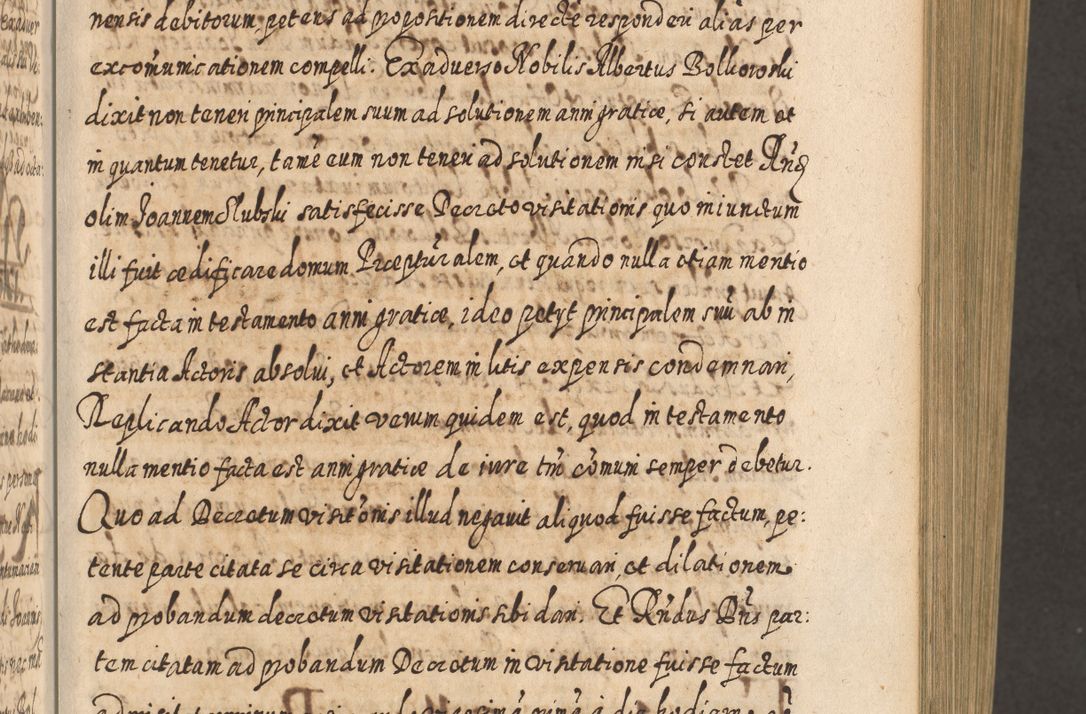 nensis debitorum, petens ad propositionem directè responderi alias per
excom̃unicationem compelli. Ex adverso Nobilis Albertus
dixit non teneri principalem suum ad solutionem anni gratiæ, si autem et
in quantum tenetur, tamẽ eum non teneri ad solutionem nisi constet Rñd
olim Joannem Slubski satisfecisse Decreto visitationis quo iniunctum
illi fuit ædificare domum Præpturalem, et quando nulla etiam mentio
est facta in testamento anni gratiæ, ideo petyt principalem suũ ab in
stantia Actoris absolvi, et Actorem in litis expensis condemnari,
Replicando Actor dixit verum quidem est, quod in testamento
nulla mentio facta est anni gratiæ de iure tñ cõmuni semper debetur.
Quo ad Decretum visitõnis illud negavit aliquod fuisse factum, pe:
tente parte citata se circa visitationem conservari, et dilationem
ad probandum decretum visitationis sibi dari. Et Rñdus Dñs par:
tem citatam ad probandum Decretum in visitatione fuisse factum